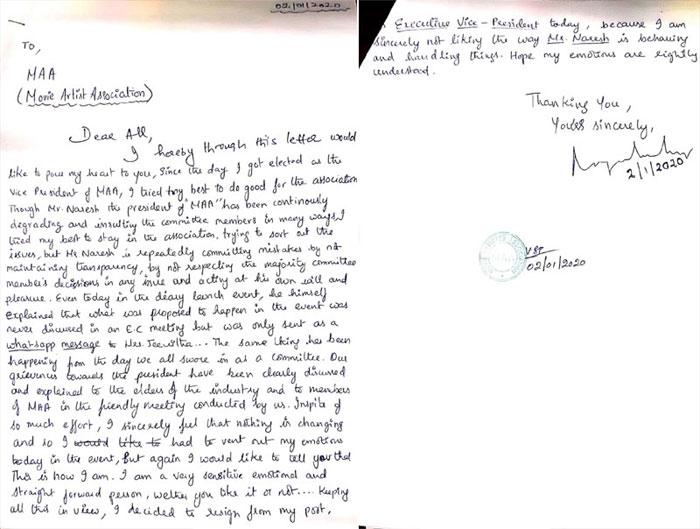 02/01/2020
To,
MAA
(Movie Artist Association)
Dear All,
I hereby through this letter would
like to pour my heart to you, Since the day I got elected as the
Vice President of MAA, I tried my best to do good for the association
Though Mr. Naresh the president of "MAA" has been continously
degrading and insulting the committee members in many ways I
tried my best to stay in the association. trying to sort out the
issues, but Mr Naresh is repeatedly committing mistakes by not
maintaining transparency, by not respecting the majority committee
member's decisions in any issue and acting at his own will and
pleasure. Even today in the diary launch event, he himself
explained that what was proposed to happen in the event was
never discussed in an E.C meeting but was only sent as a
whatsapp message to Mrs Jeevitha... The same thing has been
happening from the day we all swore in as a committee. Our
grievences towards the president have been clearly discussed
and explained to the elders of the industry and to members
of MAA in the friendly meeting conducted by us. Inspite of
so much effort, I sincerely feel that nothing is changing
and so I would like to had to vent out my emotions
today in the event, But again I would like to tell you that
This is how I am. I am a very sensitive emotional and
straight forward person, wether you like it or not.... Keeping
all this in view, I decided to resign from my post,
Executive Vice - President today, because I am
sincerely not liking the way Mr. Naresh is behaving
and handling things. Hope my emotions are rightly
understood.
Thanking You,
Yours sincerely,
2/1/2020
02/01/2020